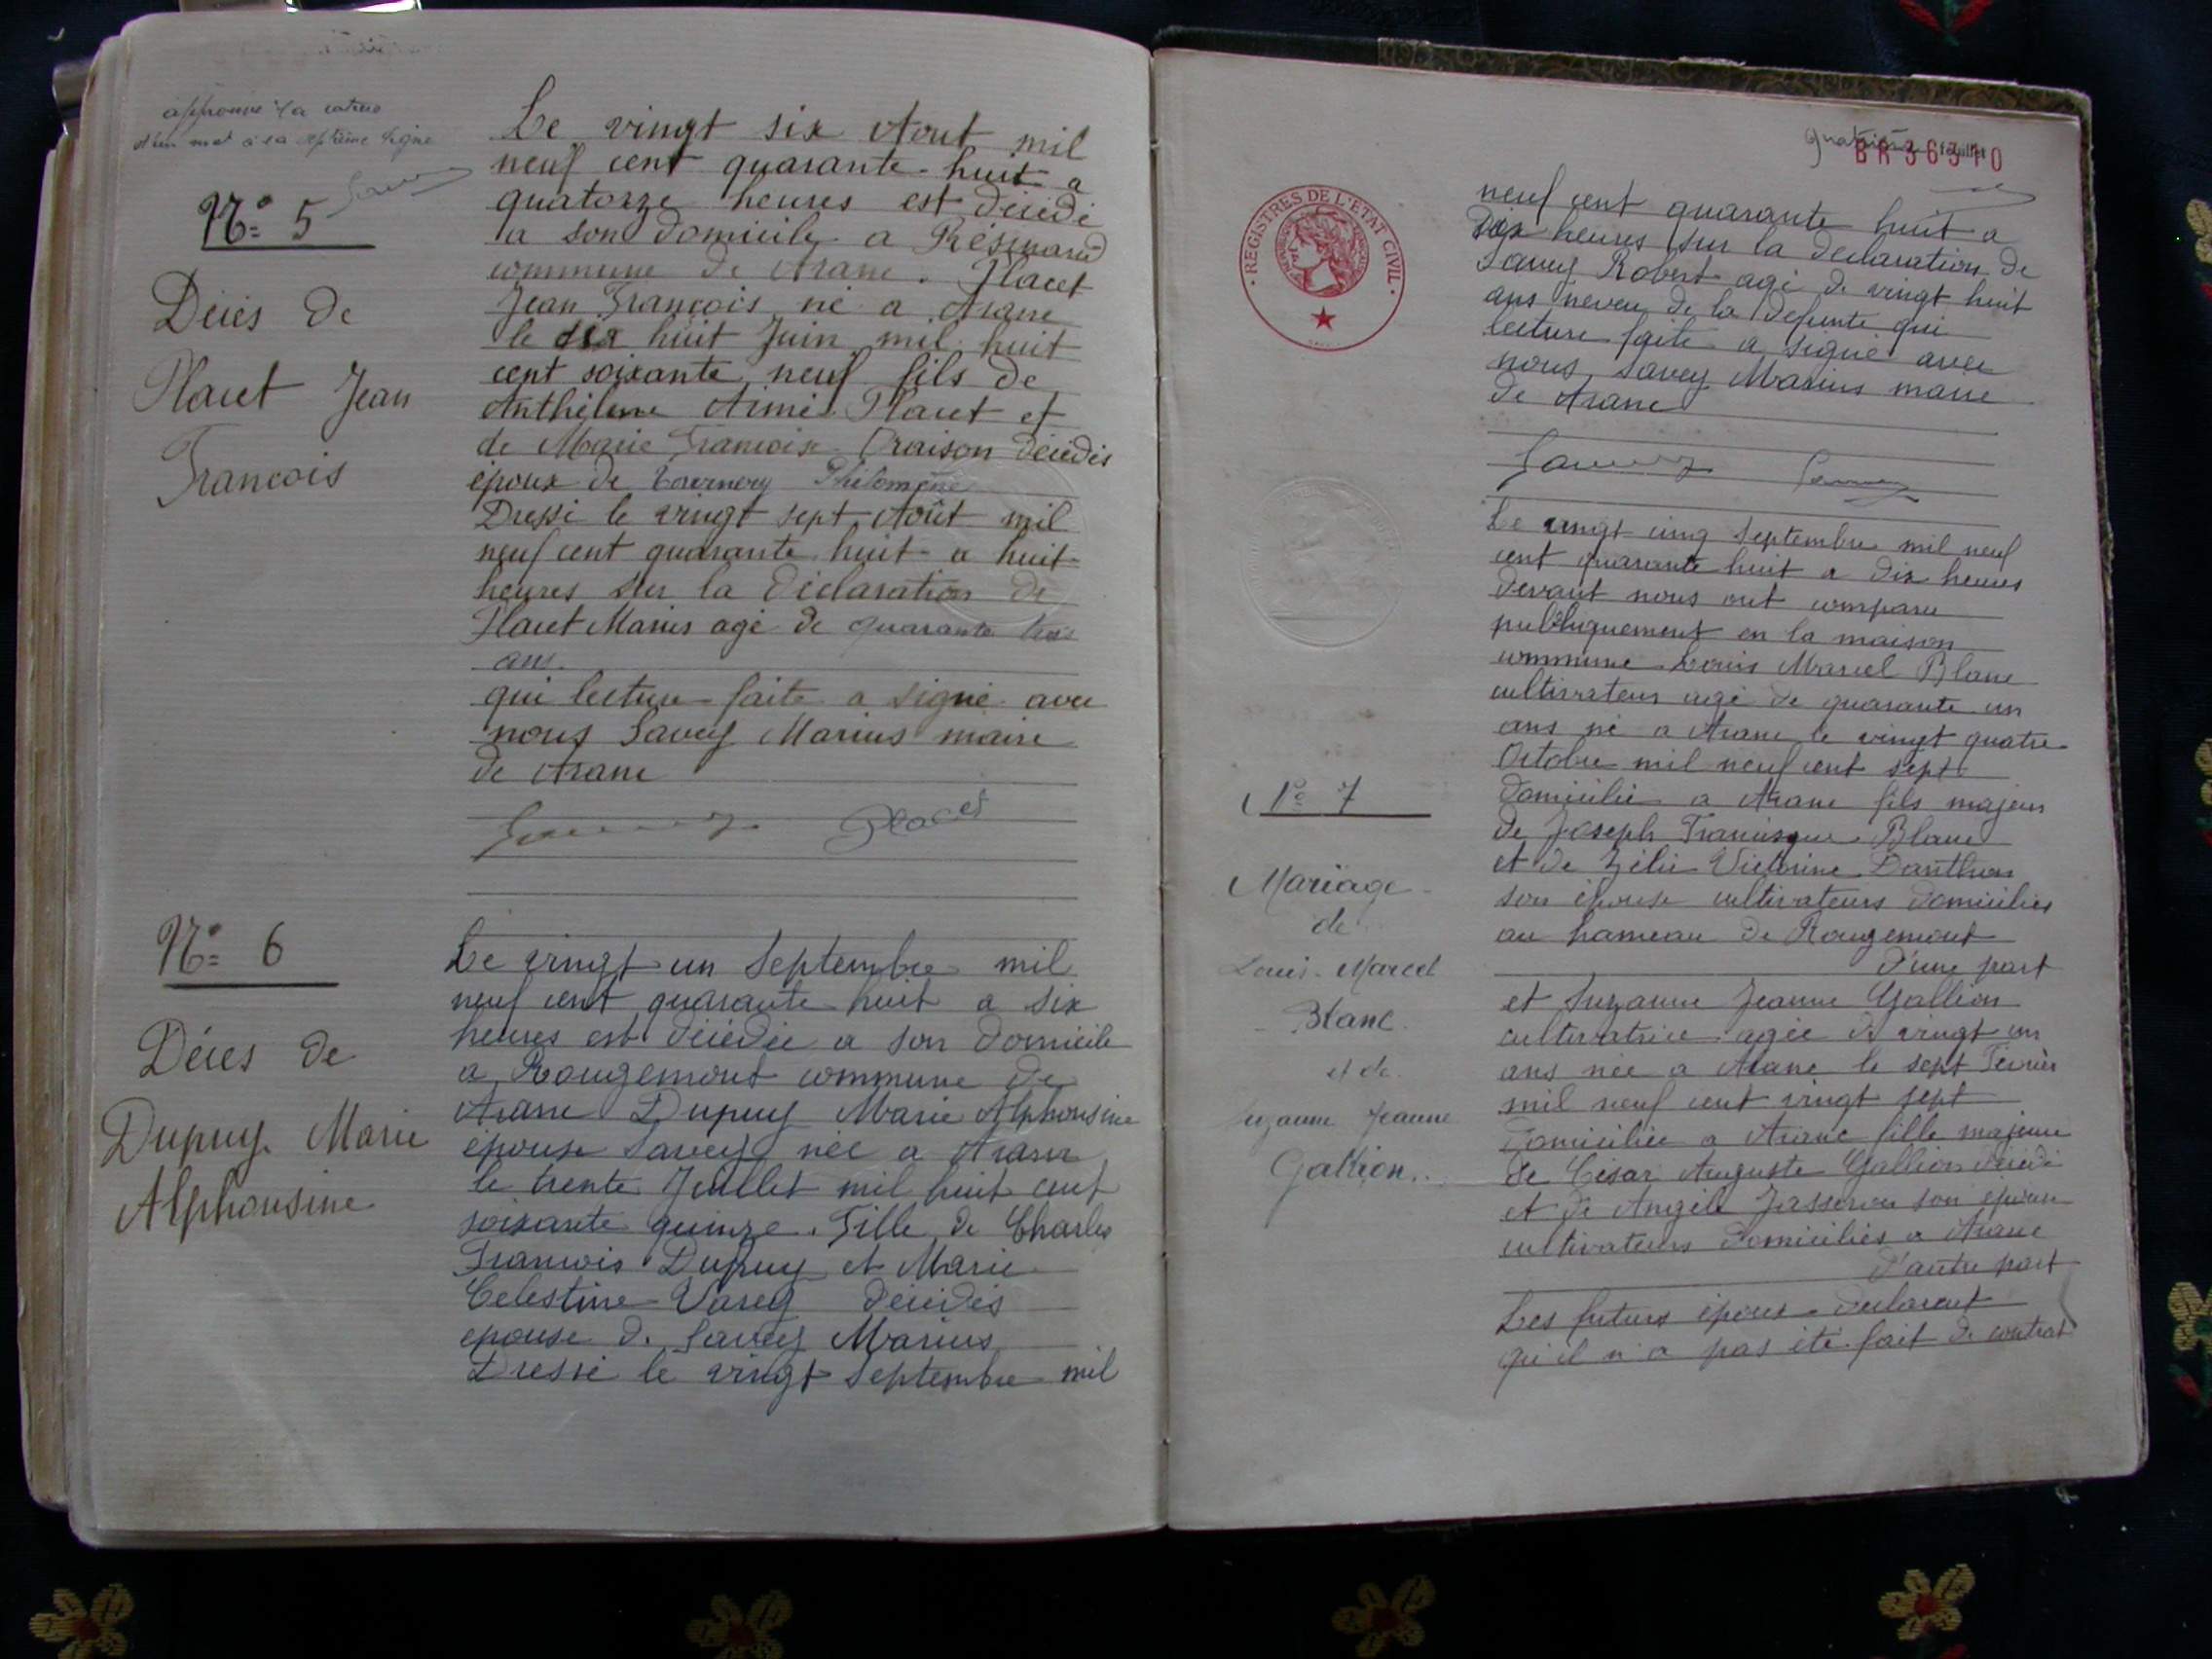 approuvé la rature
d'un mot à la septième ligne
N° 5
Décès de
Placet Jean
Francois
Le vingt six Aout mil
neuf cent quarante huit a
quatorze heures est décédé
a son domicile a Résinand
commune de Aranc. Placet
Jean François né a Aranc
le dix huit Juin mil huit
cent soixante neuf fils de
Anthelme Aimé Placet et
de Marie Francoise Oraison décédés
époux de Tavernery Philomène
Dressé le vingt sept Août mil
neuf cent quarante huit a huit
heures sur la déclaration de
Placet Marius agé de quarante trois
ans.
qui lecture faite a signé avec
nous Savey Marius maire
de Aranc
Savey Placet
N° 6
Décès de
Dupuy Marie
Alphonsine
Le vingt un Septembre mil
neuf cent quarante huit a six
heures est décédée a son domicile
a Rougemont commune de
Aranc Dupuy Marie Alphonsine
épouse Savey née a Aranc
le trente Juillet mil huit cent
soixante quinze. Fille de Charles
Francois Dupuy et Marie
Celestine Varey décédés
epouse de Savey Marius
Dressé le vingt Septembre mil
quatrième feuillet
BR36510
REGISTRES DE L'ETAT CIVIL
neuf cent quarante huit a
dix heures sur la déclaration de
Savey Robert agé de vingt huit
ans neveu de la défunte qui
lecture faite a signé avec
nous Savey Marius maire
de Aranc
Savey Savey
N° 7
Mariage
de
Louis Marcel
Blanc
et de
Suzanne Jeanne
Gallion
Le vingt cinq Septembre mil neuf
cent quarante huit a dix heures
devant nous ont comparu
publiquement en la maison
commune Louis Marcel Blanc
cultivateur agé de quarante un
ans né a Aranc le vingt quatre
Octobre mil neuf cent sept
domicilié a Aranc fils majeur
de Joseph Francisque Blanc
et de Zélie Victorine Danthon
son épouse cultivateurs domiciliés
au hameau de Rougemont
d'une part
et Suzanne Jeanne Gallion
cultivatrice agée de vingt un
ans née a Aranc le sept Février
mil neuf cent vingt sept
domiciliée a Aranc fille majeure
de César Auguste Gallion décédé
et de Angèle Jasseron son épouse
cultivateurs domiciliés a Aranc
d'autre part
Les futurs époux declarent
qu'il n'a pas été fait de contrat